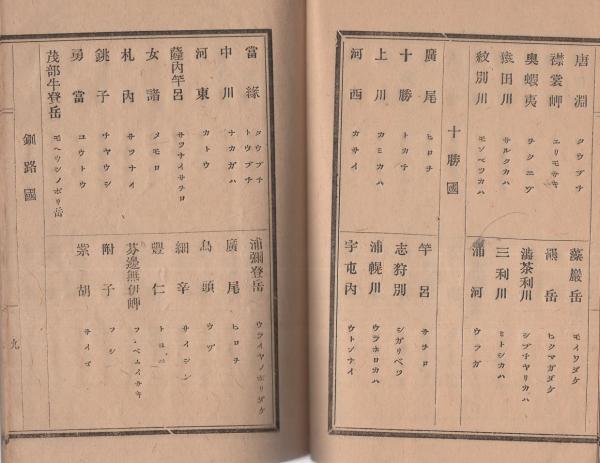 唐淵 タウブチ
襟裳岬 エリモサキ
奧蝦夷 チクエゾ
猿田川 サルタカハ
紋別川 モンベツカハ
藻巖岳 モイワダケ
熊岳 ヒクマガダケ
澁茶利川 シブチヤリカハ
三利川 ミトシカハ
浦河 ウラガ
十勝國
廣尾 ヒロチ
十勝 トカチ
上川 カミカハ
河西 カサイ
竿呂 サチロ
志狩別 シガリベツ
浦幌川 ウラホロカハ
宇屯内 ウトンナイ
當緣 タウブチ トウブチ
中川 ナカガハ
河東 カトウ
薩内竿呂 サツナイサチロ
女諸 メモロ
札内 サツナイ
銚子 チヤウシ
勇當 ユウトウ
茂部牛登岳 モヘウシノボリ岳
浦彌登岳 ウライヤノボリダケ
廣尾 ヒロチ
烏頭 ウヅ
細辛 サイシン
豐仁 トヨニ
芬邊無伊岬 フンベムイサキ
附子 フシ
柴胡 サイコ
釧路國
九